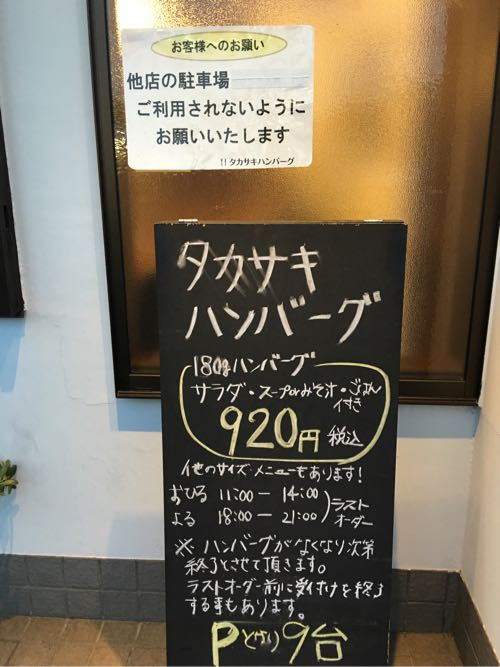 お客様へのお願い
他店の駐車場
ご利用されないように
お願いいたします
!!タカサキハンバーグ
タカサキ
ハンバーグ
180gハンバーグ
サラダ・スープorみそ汁・ごはん
付き
920円 税込
他のサイズ・メニューもあります!
おひる 11:00-14:00
よる 18:00-21:00
ラスト
オーダー
※ハンバーグがなくなり次第
終了とさせて頂きます。
ラストオーダー前に受付けを終了
する事もあります。
Pとなり9台